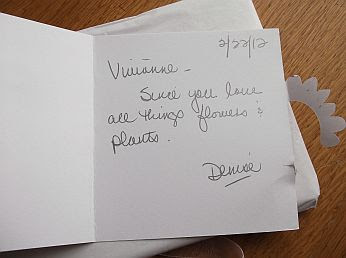 2/22/12
Vivianne -
Since you love
all things flowers &
plants.
Denise